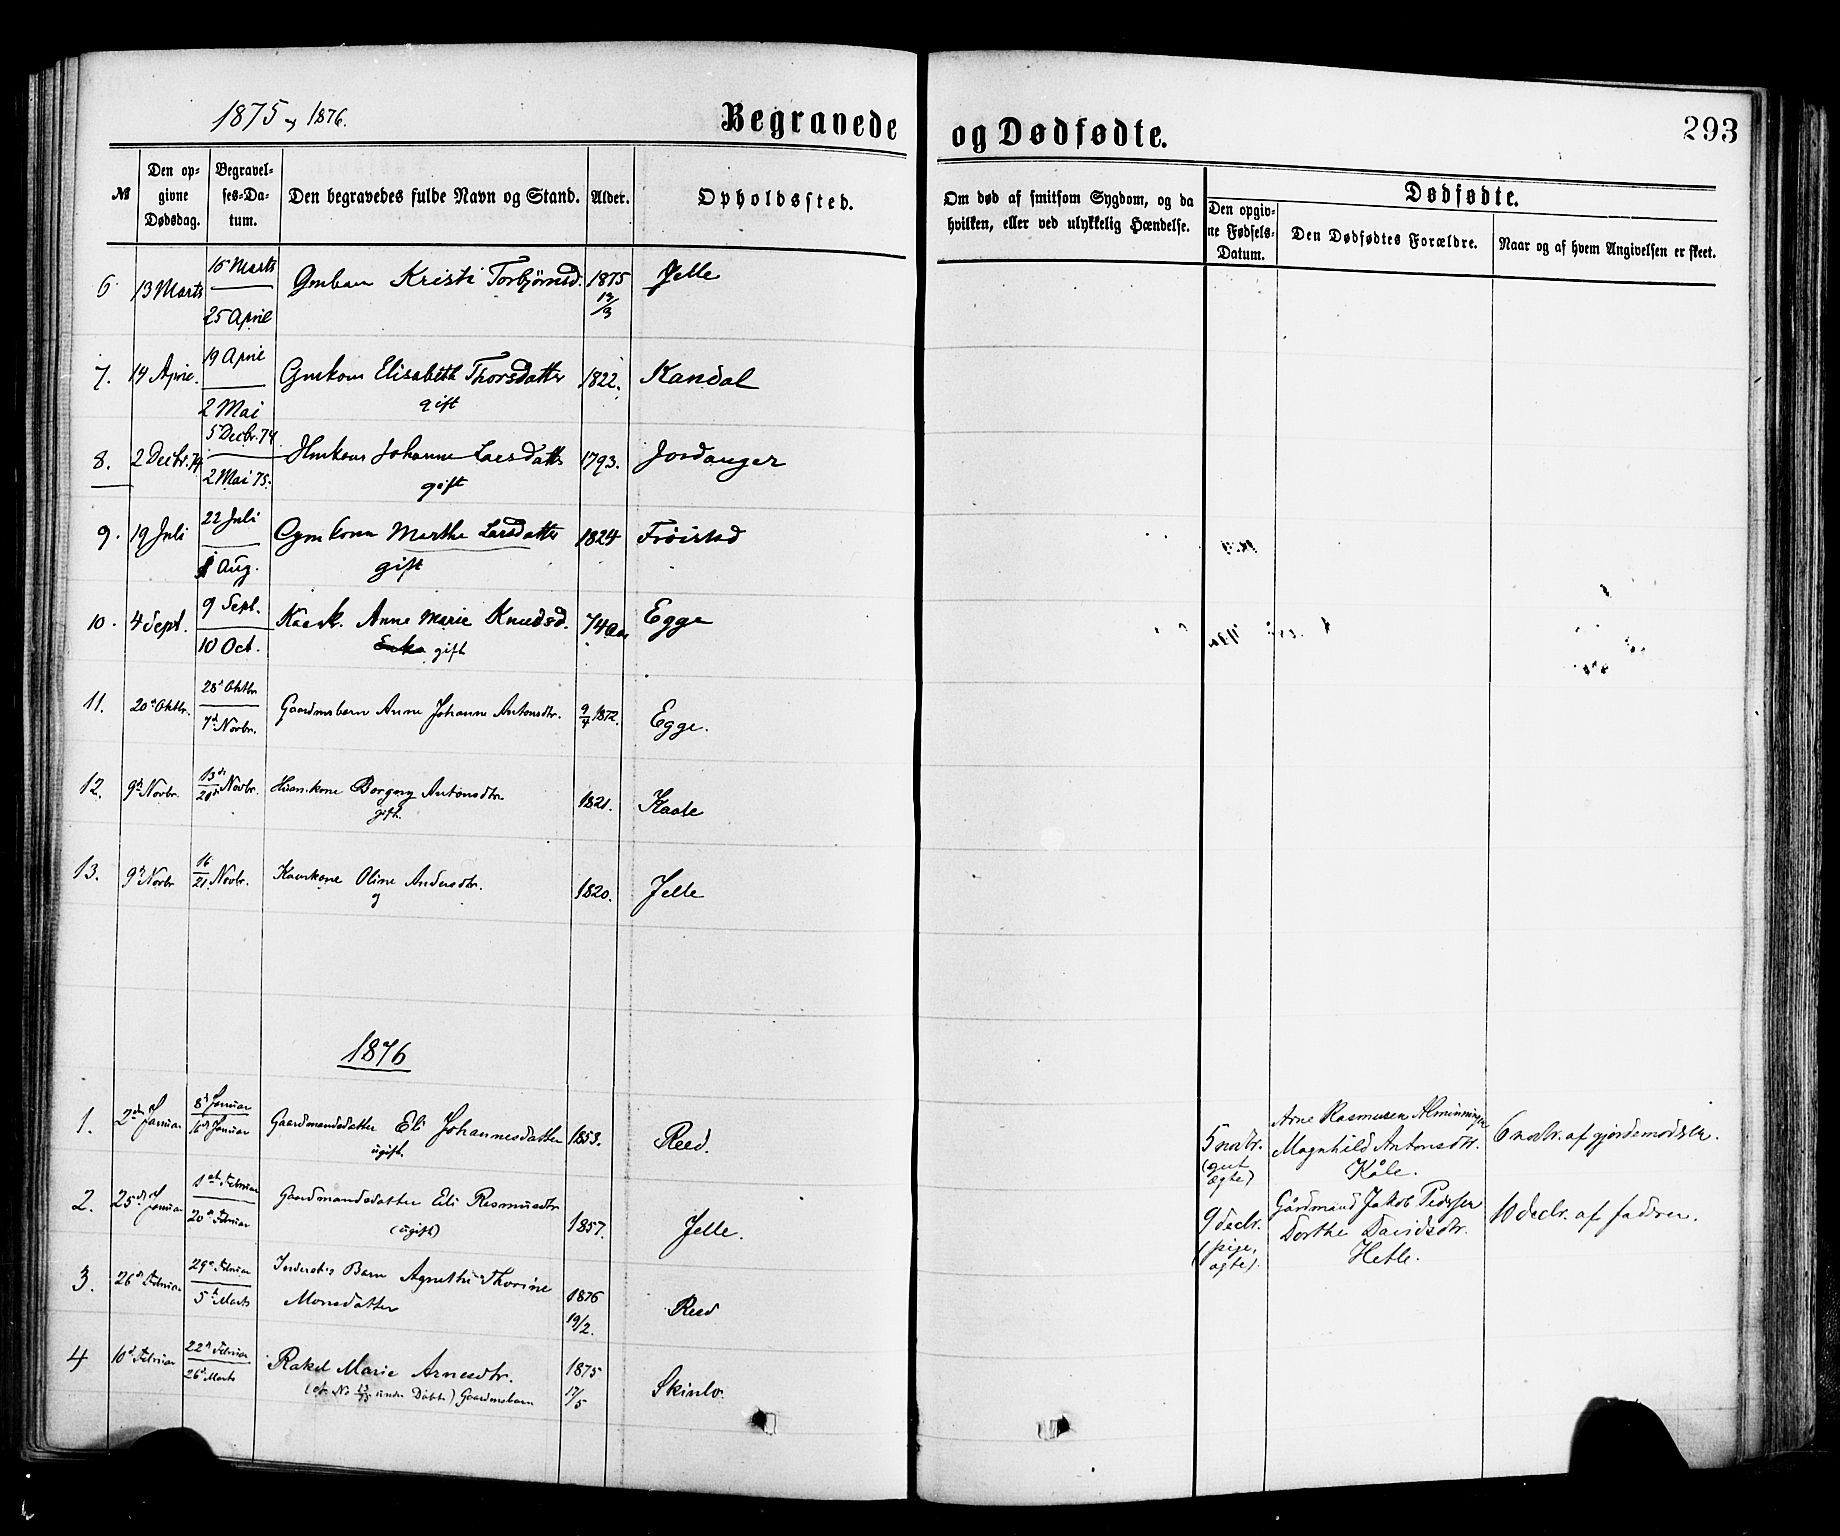 1875 og 1876.
Begravede og Dødfødte.
293
№
Den opgivne Dødsdag.
Begravelses-Datum.
Den begravedes fulde Navn og Stand.
Alder.
Opholdssted.
Om død af smitsom Sygdom, og da hvilken, eller ved ulykkelig Hændelse.
Dødfødte.
Den opgivne Fødsels-Datum.
Den Dødfødtes Forældre.
Naar og af hvem Angivelsen er skeet.
6. 13 Marts 15 Marts 25 April Gmbarn Kristi Torbjørnsd. 1875 12/3 Jelle
7. 14 April 19 April 2 Mai Gmkone Elisabeth Thorsdatter gift 1822. Kandal
8. 2 Decbr. 74 5 Decbr. 74 2 Mai 75. Hmkone Johanne Larsdatter gift 1793. Jordanger
9. 19 Juli 22 Juli 1 Aug. Gmkone Marthe Larsdatter gift 1824 Frøistad
10. 4 Sept. 9 Sept. 10 Oct. Kaark. Anne Marie Knudsd. Enke gift 74 Aar Egge
11. 20de Oktbr. 28d Oktbr 7d Novbr. Gaardmsbarn Anne Johanne Antonsdtr. 9/4 1872. Egge.
12. 9d Novbr. 13de 21de Novbr. Husmkone Borgny Antonsdtr. gift. 1821. Kaale
13. 9d Novbr 16 21 Novbr. Kaarkone Oline Andersdtr. g 1820. Jelle
1876
1. 2den Januar 8d Januar 16d Januar Gaardmandsdatter Eli Johannesdatter ugift. 1853. Reed.
5 novbr. (gut ægte) Arne Rasmusen Alminningen Magnhild Antonsdtr. Kåle. 6 novbr. af gjordemoderen.
2. 25de Januar 1ste Februar 20de Februar Gaardmandsdatter Eli Rasmusdtr (ugift) 1857. Jelle.
9 decbr. (pige, ægte). Gårdmand Jakob Pedersen Dorthe Davidsdtr. Hetle. 10 decbr. af faderen.
3. 26de Februar 29de Februar 5te Marts Inderstes Barn Agnethe Thorine Monsdatter 1876 19/2. Reed
4 10d Februar 22d Februar 26d Marts Rakel Marie Arnesdtr. (cf. No 13/75 under Døbte) Gaardmsbarn 1875 17/5 Skinlo.